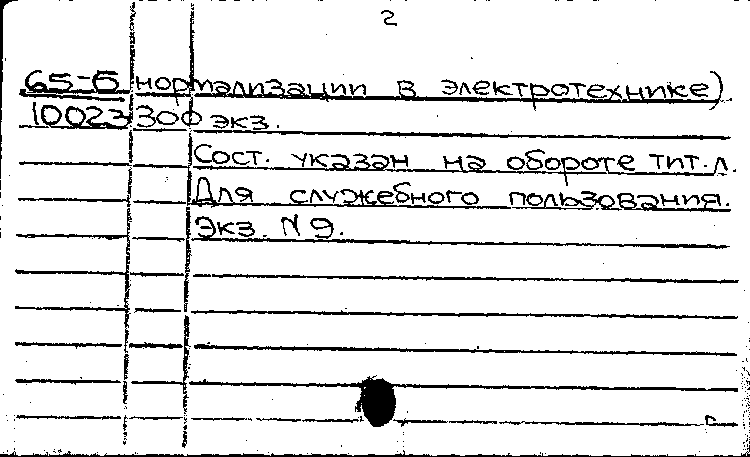 2
65-Б нормализации в электротехнике)
10023 300 экз.
Сост. указан на обороте тит. л.
Для служебного пользования.
Экз. N 9.
г